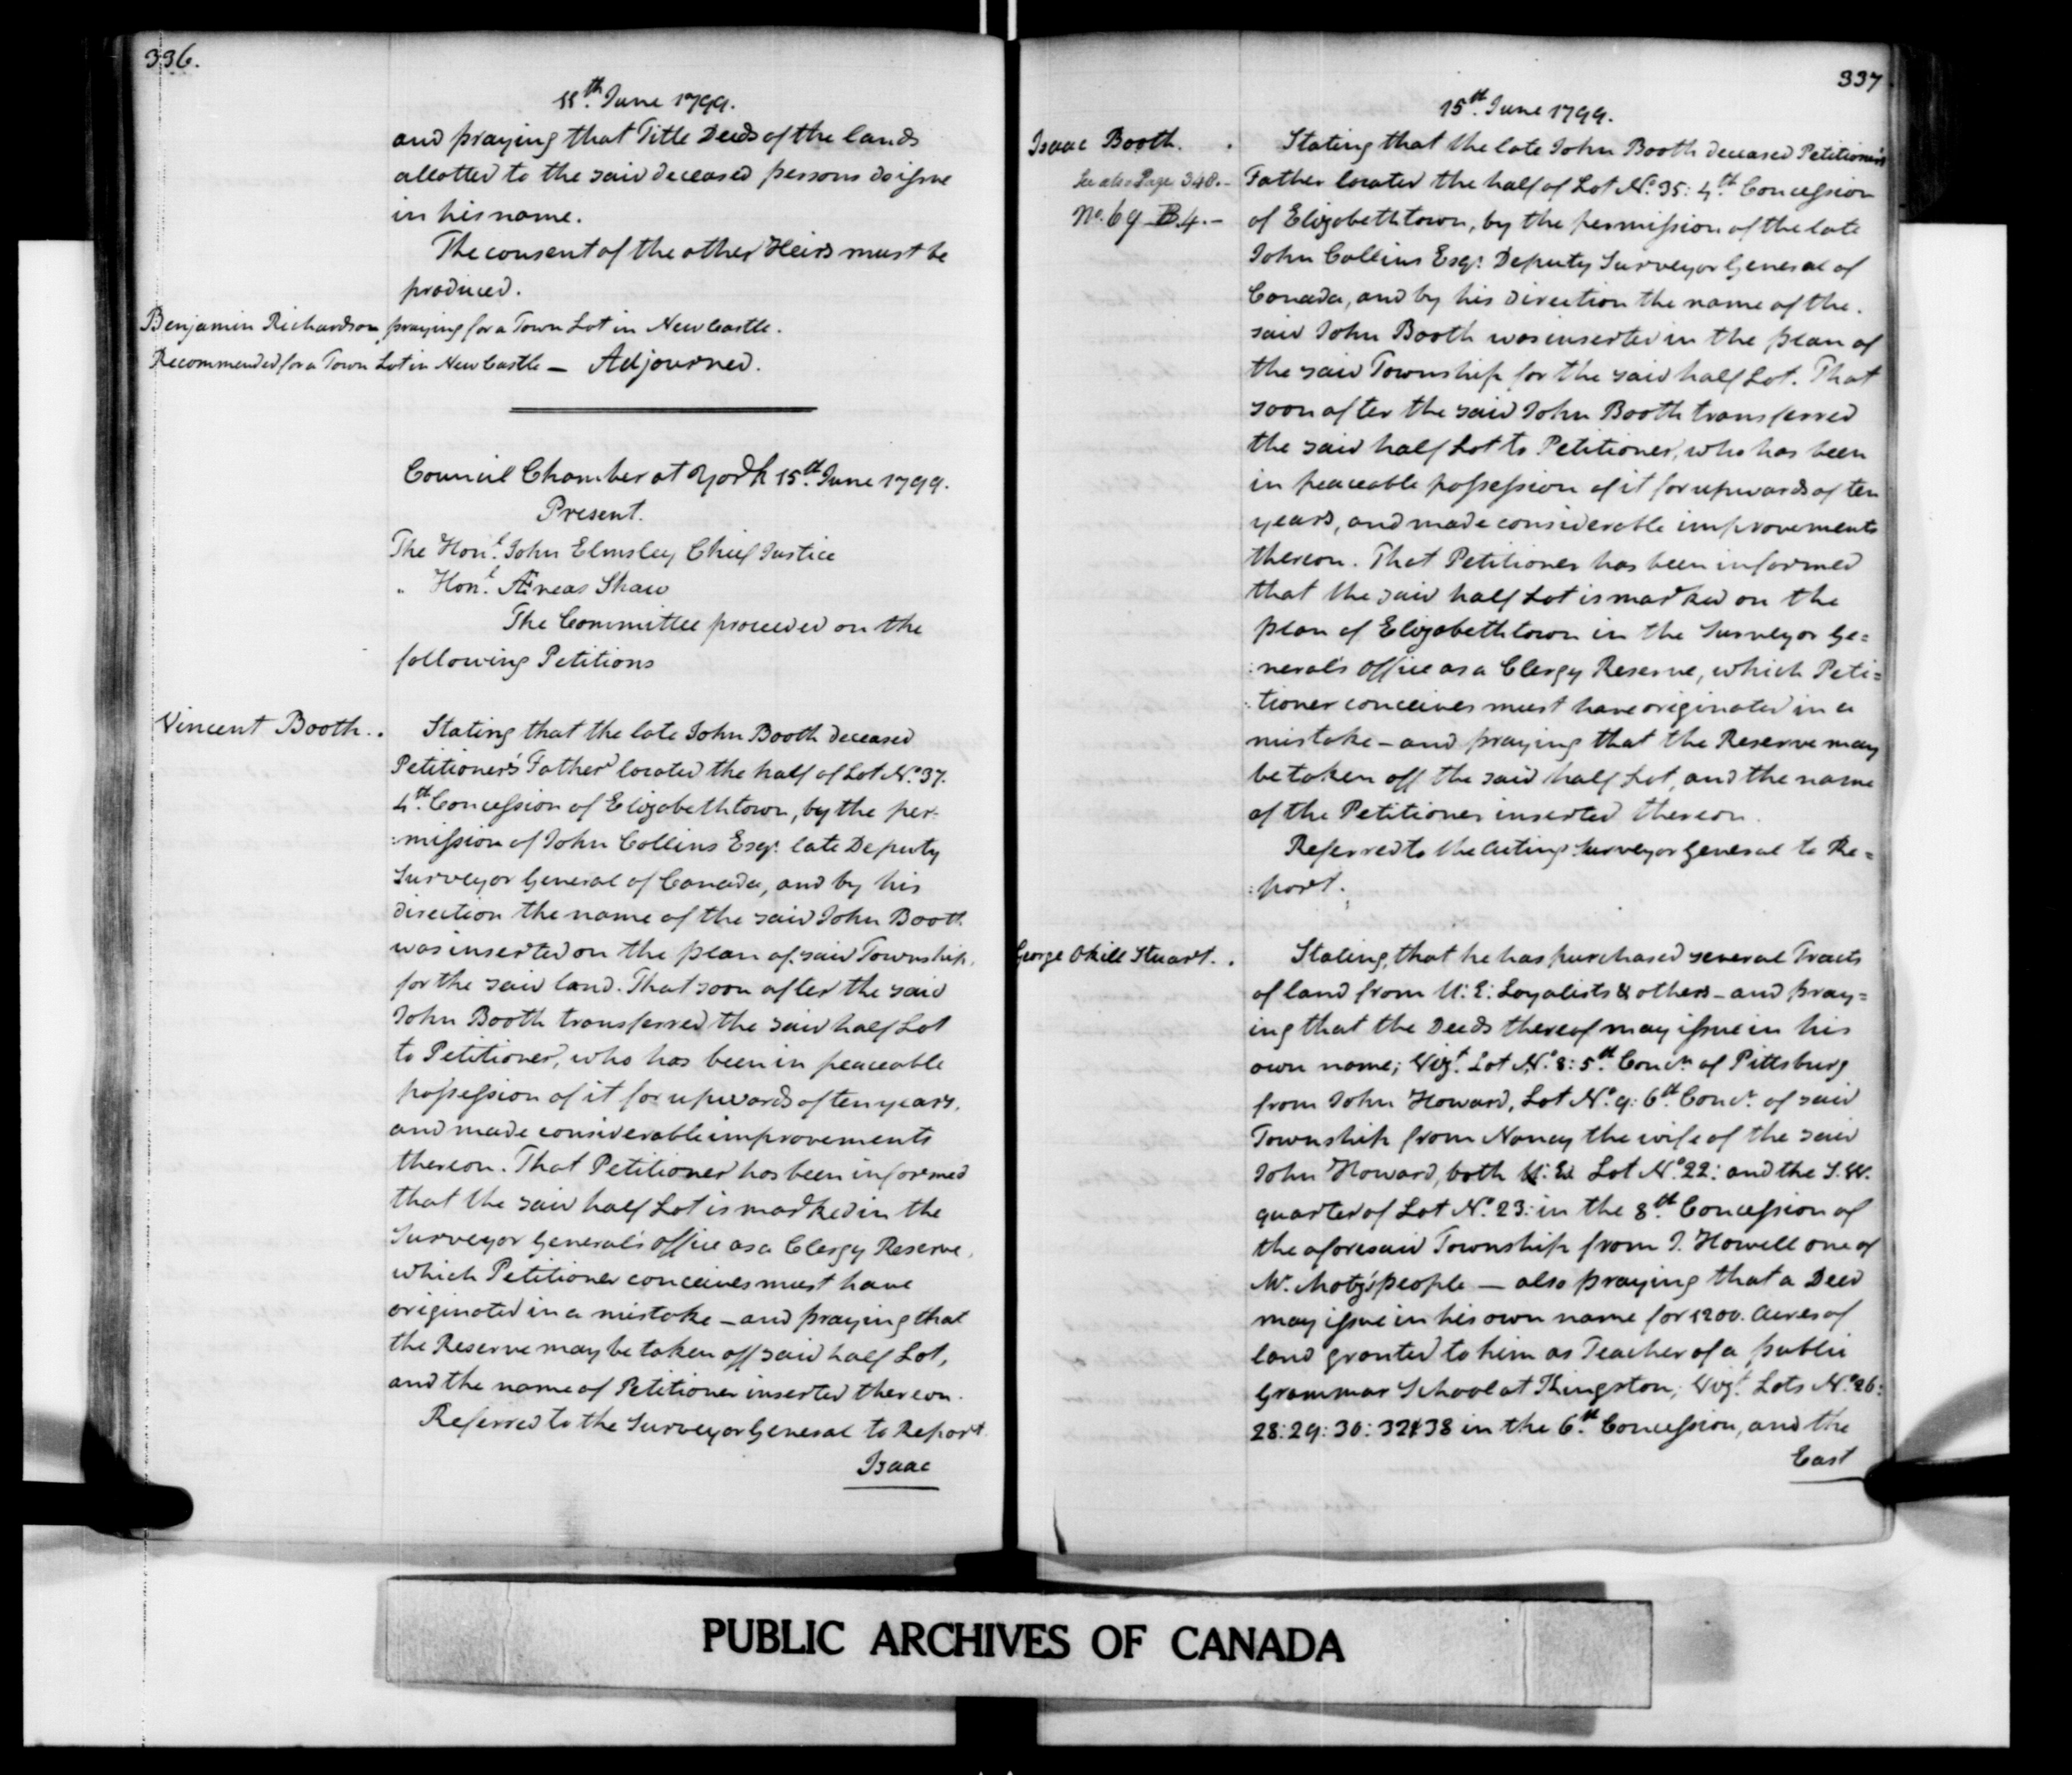 336.
11th June 1799.
and praying that Title Deeds of the lands
allotted to the said deceased persons do issue
in his name.
The consent of the other Heirs must be
produced.
Benjamin Richardson praying for a Town Lot in New Castle.
Recommended for a Town Lot in New Castle — Adjourned.
Council Chamber at York 15th June 1799.
Present.
The Honl. John Elmsley Chief Justice
„ Honl. Æneas Shaw
The Committee proceeded on the
following Petitions
Vincent Booth. . Stating that the late John Booth deceased
Petitioner's Father located the half of Lot No. 37.
4th Concession of Elizabethtown, by the per:
:mission of John Collins Esqr. late Deputy
Surveyor General of Canada, and by his
direction the name of the said John Booth
was inserted on the plan of said Township,
for the said land. That soon after the said
John Booth transferred the said half Lot
to Petitioner, who has been in peaceable
possession of it for upwards of ten years,
and made considerable improvements
thereon. That Petitioner has been informed
that the said half Lot is marked in the
Surveyor General's office as a Clergy Reserve,
which Petitioner conceives must have
originated in a mistake – and praying that
the Reserve may be taken off said half Lot,
and the name of Petitioner inserted thereon.
Referred to the Surveyor General to Report
Isaac
337
15th June 1799.
Isaac Booth. . Stating that the late John Booth deceased Petitioner's
See also Page 340. – Father located the half of Lot No. 35: 4th Concession
No. 69 B 4. – of Elizabethtown, by the permission of the late
John Collins Esqr. Deputy Surveyor General of
Canada, and by his direction the name of the
said John Booth was inserted in the plan of
the said Township for the said half Lot. That
soon after the said John Booth transferred
the said half Lot to Petitioner, who has been
in peaceable possession of it for upwards of ten
years, and made considerable improvements
thereon. That Petitioner has been informed
that the said half Lot is marked on the
plan of Elizabethtown in the Surveyor Ge=
:neral's office as a Clergy Reserve, which Peti=
:tioner conceives must have originated in a
mistake – and praying that the Reserve may
be taken off the said half Lot, and the name
of the Petitioner inserted thereon.
Referred to the Acting Surveyor General to Re=
:port.
George Okill Stuart. . Stating, that he has purchased several Tracts
of land from U: E: Loyalists & others – and pray=
ing that the Deeds thereof may issue in his
own name; Vizt. Lot No. 8: 5th Concn. of Pittsburg
from John Howard, Lot No. 9: 6th Concn. of said
Township from Nancy the wife of the said
John Howard, both U: E: Lot No. 22: and the S. W.
quarter of Lot No. 23: in the 8th Concession of
the aforesaid Township from J. Howell one of
Mr. Motz's people — also praying that a Deed
may issue in his own name for 1200. Acres of
land granted to him as Teacher of a public
Grammar School at Kingston; Vizt. Lots No. 26:
28: 29: 30: 32 & 38 in the 6th Concession, and the
East
PUBLIC ARCHIVES OF CANADA